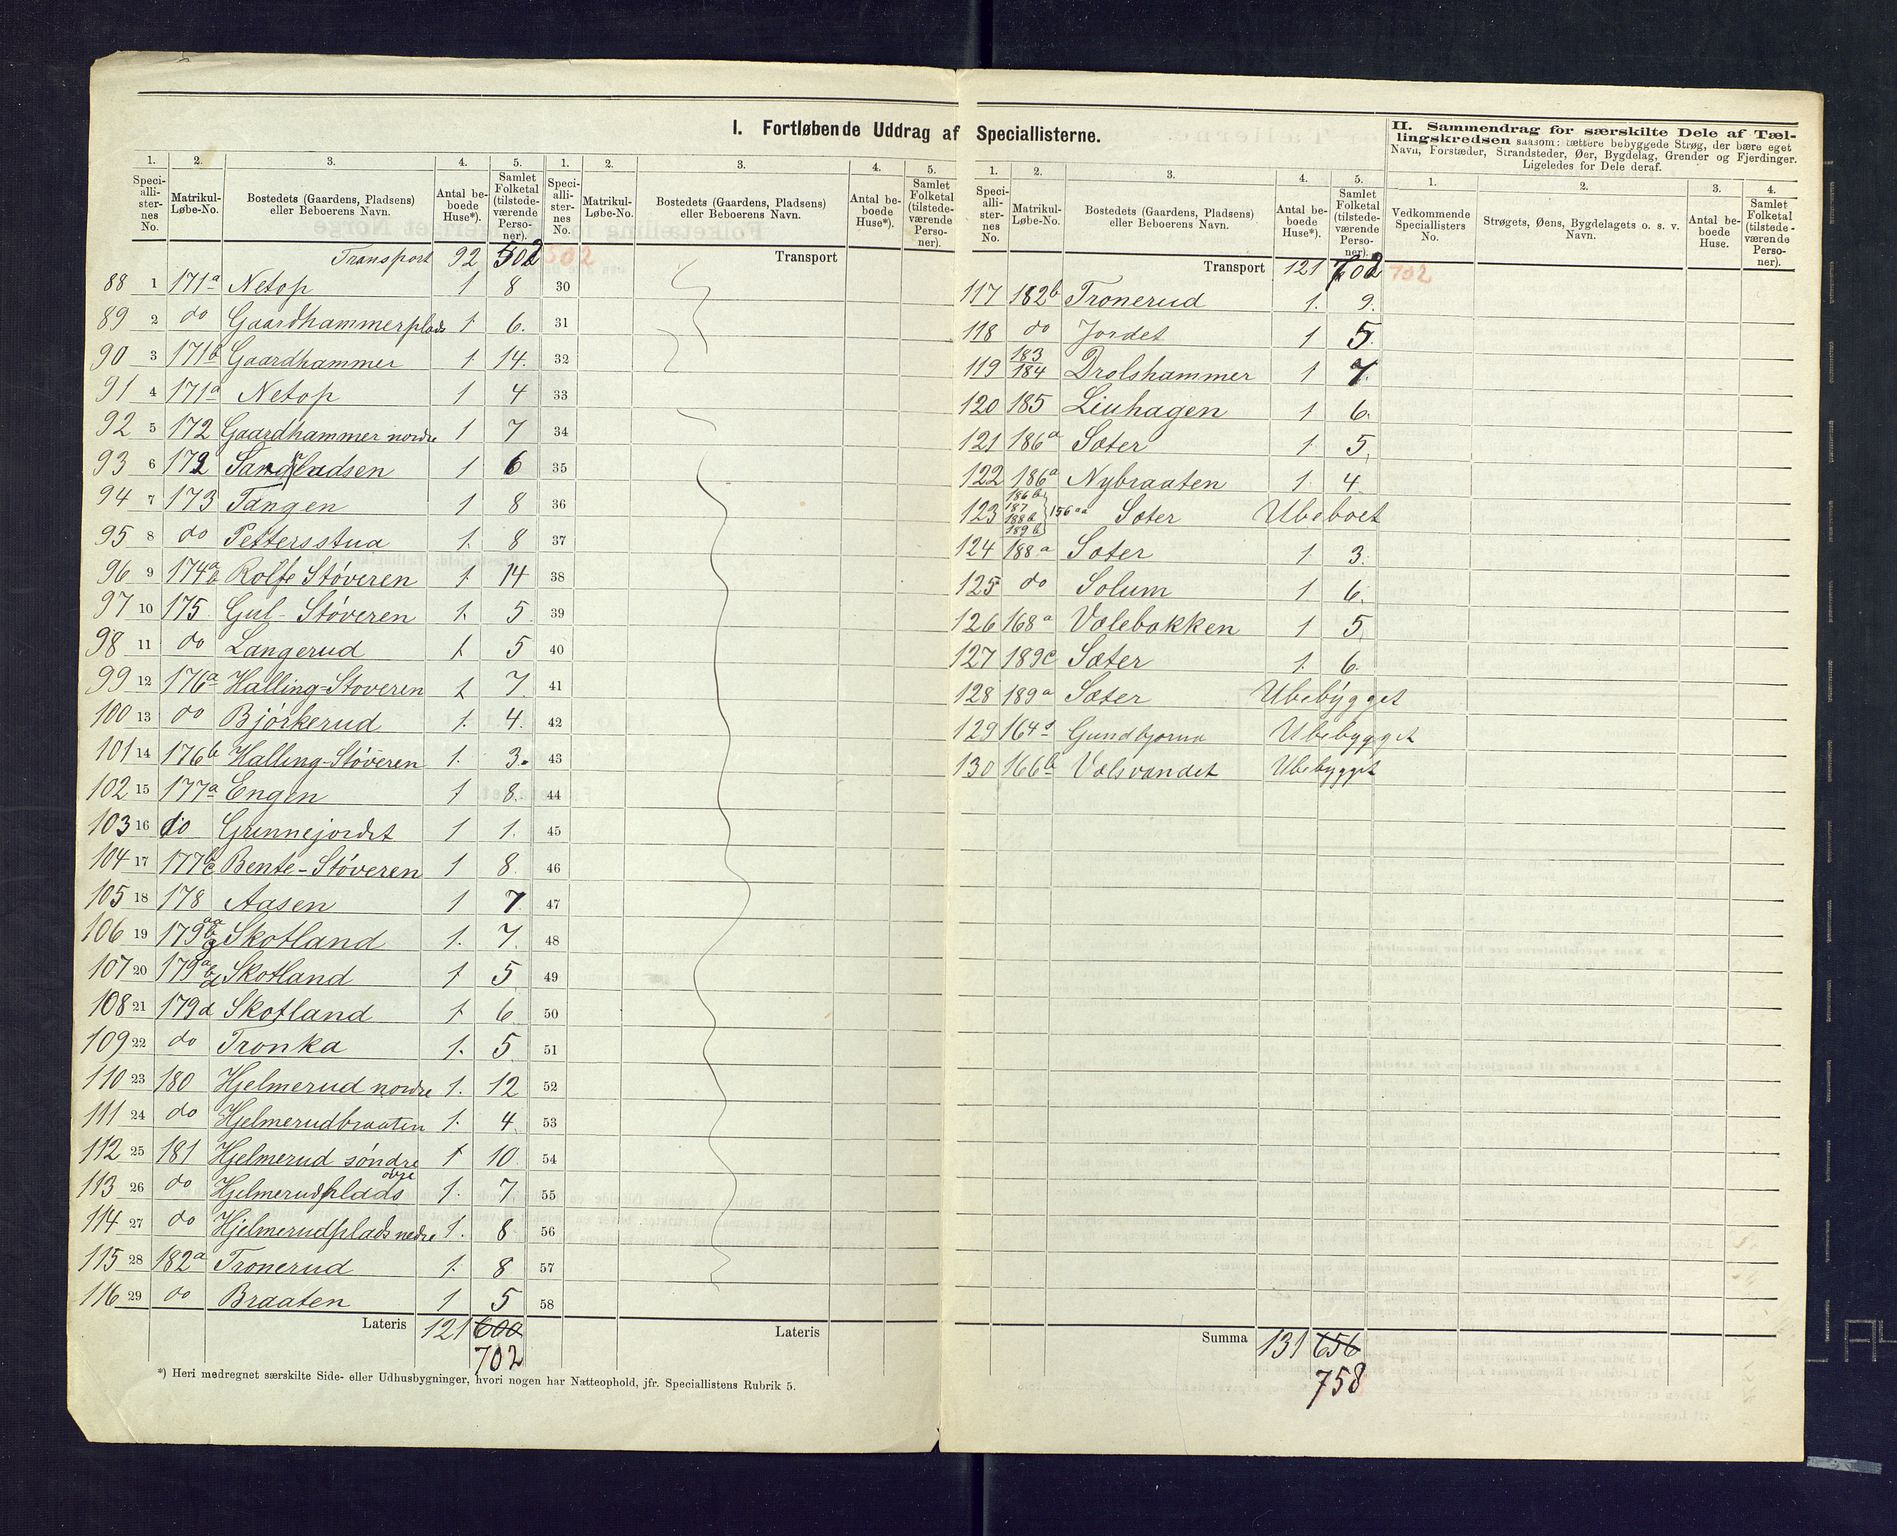 I. Fortløbende Uddrag af Speciallisterne.
1. 2. 3. 4. 5. 1. 2. 3. 4. 5.
Speciallisternes No. Matrikul-Løbe-No. Bostedets (Gaardens, Pladsens) eller Beboerens Navn. Antal beboede Huse*). Samlet Folketal (tilstedeværende Personer). Speciallisternes No. Matrikul-Løbe-No. Bostedets (Gaardens, Pladsens) eller Beboerens Navn. Antal beboede Huse*). Samlet Folketal (tilstedeværende Personer).
Transport 92 502 502 Transport
88 1 171a Netop 1 8 30
89 2 do Gaardhammerplads 1 6. 31
90 3 171b Gaardhammer 1 14. 32
91 4 171a Netop 1 4 33
92 5 172 Gaardhammer nordre 1 7 34
93 6 172 1 6 35
94 7 173 Tangen 1 8 36
95 8 do Pettersstua 1. 8 37
96 9 174a b Rolfe Støveren 1. 14 38
97 10 175 Gul-Støveren 1. 5 39
98 11 do Langerud 1 5 40
99 12 176a Halling-Støveren 1 7. 41
100 13 do Bjørkerud 1. 4. 42
101 14 176b Halling-Støveren 1. 3. 43
102 15 177a Engen 1 8. 44
103 16 do Grinnejordet 1 1. 45
104 17 177b c Bente-Støveren 1 8. 46
105 18 178 Aasen 1 7. 47
106 19 179 Skotland 1. 7. 48
107 20 179 Skotland 1 5 49
108 21 179d Skotland 1 6 50
109 22 do Tronka 1. 5. 51
110 23 180 Hjelmerud nordre 1. 12 52
111 24 do Hjelmerudbraaten 1. 4. 53
112 25 181 Hjelmerud søndre 1 10. 54
113 26 do Hjelmerudplads øvre 1. 7 55
114 27 do Hjelmerudplads nedre 1. 8. 56
115 28 182a Tronerud 1. 8 57
116 29 do Braaten 1 5 58
Lateris 121 600 Lateris
702
*) Heri medregnet særskilte Side- eller Udhusbygninger, hvori nogen har Natteophold, jfr. Speciallistens Rubrik 5.
1. 2. 3. 4. 5.
Speciallisternes No. Matrikul-Løbe-No. Bostedets (Gaardens, Pladsens) eller Beboerens Navn. Antal beboede Huse*). Samlet Folketal (tilstedeværende Personer).
Transport 121 702 702
117 182b Tronerud 1. 9.
118 do Jordet 1 5.
119 183 184 Drolshammer 1 7.
120 185 Liuhagen 1 6.
121 186a Sæter 1. 5.
122 186a Nybraaten 1. 4.
123 186b 187 188b 189b 156aa Sæter Ubeboet
124 188a Sæter 1 3.
125 do Solum 1 6.
126 168a Vælebakken 1 5.
127 189c Sæter 1. 6.
128 189a Sæter Ubebygget
129 164 Ubebygget
130 166b Vælsvandet Ubebygget
Summa 131 656
758
II. Sammendrag for særskilte Dele af Tællingskredsen saasom: tættere bebyggede Strøg, der bære eget Navn, Forstæder, Strandsteder, Øer, Bygdelag, Grender og Fjerdinger. Ligeledes for Dele deraf.
1. 2. 3. 4.
Vedkommende Speciallisters No. Strøgets, Øens, Bygdelagets o. s. v. Navn. Antal beboede Huse. Samlet Folketal (tilstedeværende Personer).